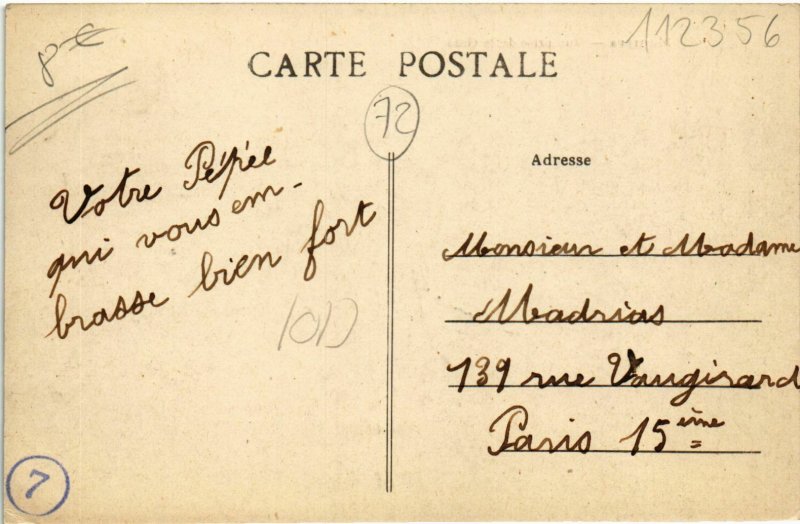 8€
112356
CARTE POSTALE
72
Adresse
Votre Pépée
qui vous em-
brasse bien fort
Monsieur et Madame
Madrias
139 rue Vaugirard
Paris 15ème
7